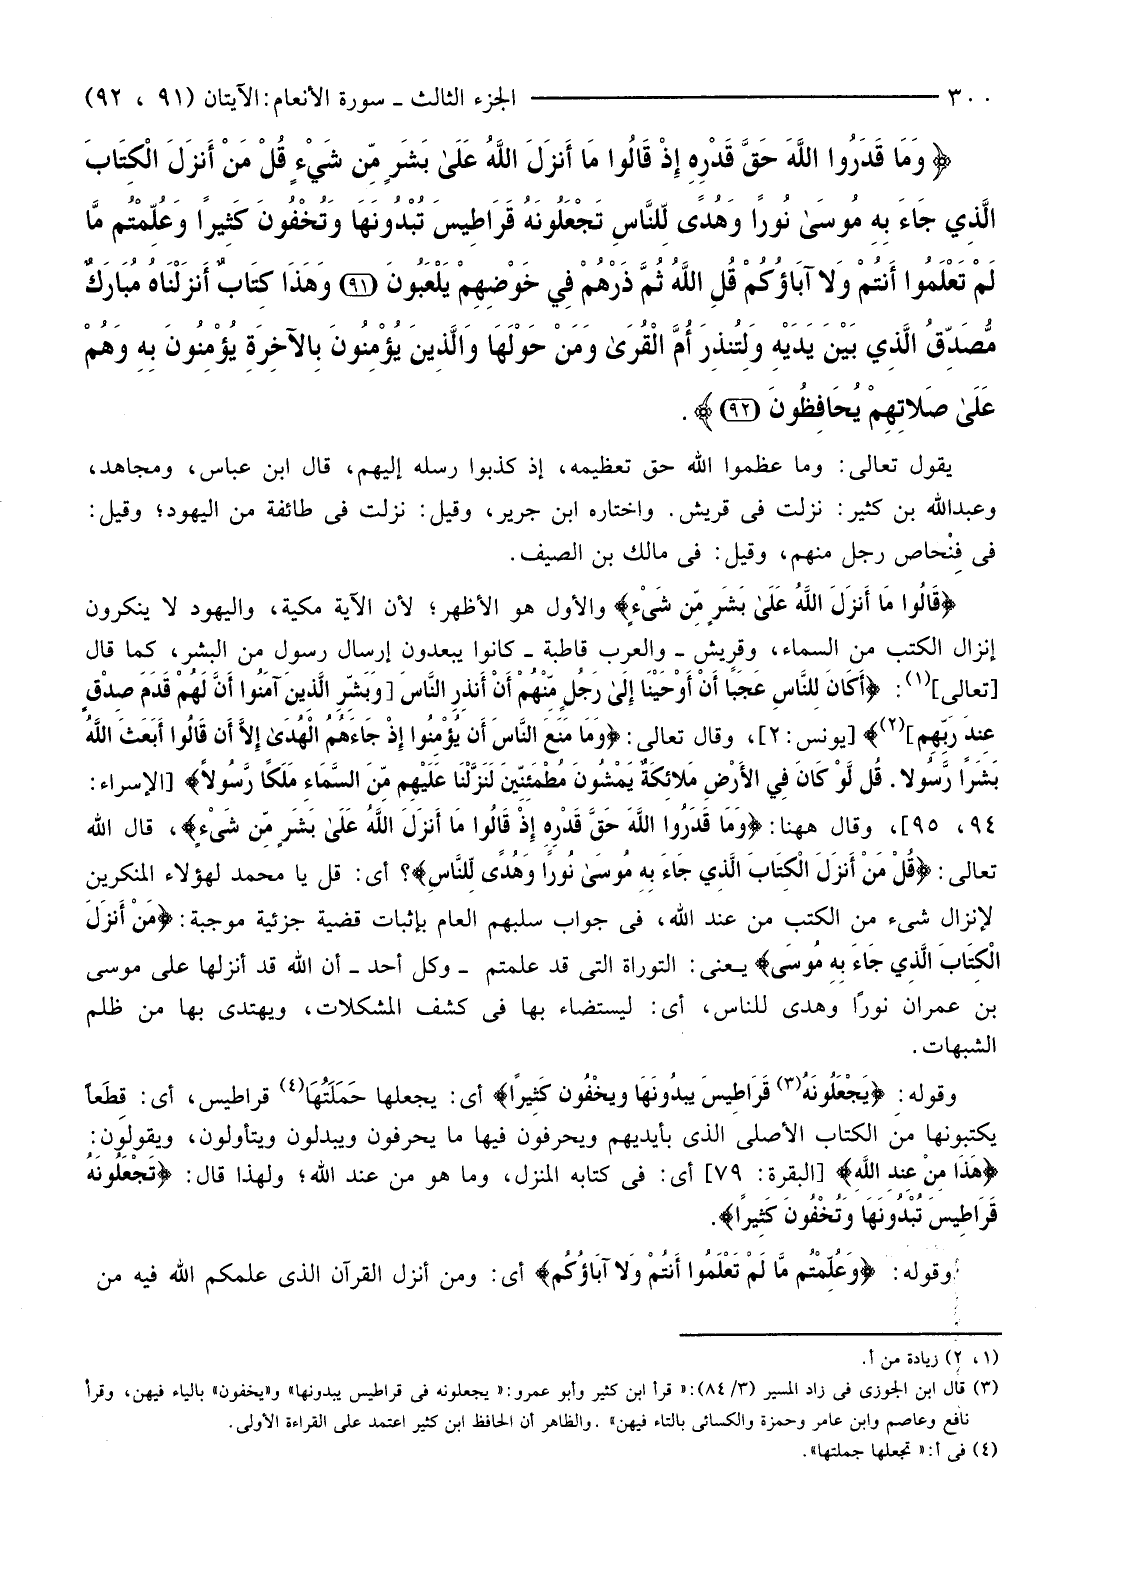 ٣٠٠ ـــــــــ الجزء الثالث ـ سورة الأنعام: الآيتان (٩١ ، ٩٢)
﴿ وَمَا قَدَرُوا اللَّهَ حَقَّ قَدْرِهِ إِذْ قَالُوا مَا أَنزَلَ اللَّهُ عَلَىٰ بَشَرٍ مِّن شَيْءٍ قُلْ مَنْ أَنزَلَ الْكِتَابَ
الَّذِي جَاءَ بِهِ مُوسَىٰ نُورًا وَهُدًى لِّلنَّاسِ تَجْعَلُونَهُ قَرَاطِيسَ تُبْدُونَهَا وَتُخْفُونَ كَثِيرًا وَعُلِّمْتُم مَّا
لَمْ تَعْلَمُوا أَنتُمْ وَلا آبَاؤُكُمْ قُلِ اللَّهُ ثُمَّ ذَرْهُمْ فِي خَوْضِهِمْ يَلْعَبُونَ (٩١) وَهَذَا كِتَابٌ أَنزَلْنَاهُ مُبَارَكٌ
مُّصَدِّقُ الَّذِي بَيْنَ يَدَيْهِ وَلِتُنذِرَ أُمَّ الْقُرَىٰ وَمَنْ حَوْلَهَا وَالَّذِينَ يُؤْمِنُونَ بِالآخِرَةِ يُؤْمِنُونَ بِهِ وَهُمْ
عَلَىٰ صَلاتِهِمْ يُحَافِظُونَ (٩٢)﴾ .
يقول تعالى: وما عظموا الله حق تعظيمه، إذ كذبوا رسله إليهم، قال ابن عباس، ومجاهد،
وعبدالله بن كثير: نزلت فى قريش. واختاره ابن جرير، وقيل: نزلت فى طائفة من اليهود؛ وقيل:
فى فِنْحاص رجل منهم، وقيل: فى مالك بن الصيف.
﴿قَالُوا مَا أَنزَلَ اللَّهُ عَلَىٰ بَشَرٍ مِّن شَيْءٍ﴾ والأول هو الأظهر؛ لأن الآية مكية، واليهود لا ينكرون
إنزال الكتب من السماء، وقريش ـ والعرب قاطبة ـ كانوا يبعدون إرسال رسول من البشر، كما قال
[تعالى](١): ﴿أَكَانَ لِلنَّاسِ عَجَبًا أَنْ أَوْحَيْنَا إِلَىٰ رَجُلٍ مِّنْهُمْ أَنْ أَنذِرِ النَّاسَ [وَبَشِّرِ الَّذِينَ آمَنُوا أَنَّ لَهُمْ قَدَمَ صِدْقٍ
عِندَ رَبِّهِمْ](٢)﴾ [يونس: ٢]، وقال تعالى: ﴿وَمَا مَنَعَ النَّاسَ أَن يُؤْمِنُوا إِذْ جَاءَهُمُ الْهُدَىٰ إِلاَّ أَن قَالُوا أَبَعَثَ اللَّهُ
بَشَرًا رَّسُولا. قُل لَّوْ كَانَ فِي الأَرْضِ مَلائِكَةٌ يَمْشُونَ مُطْمَئِنِّينَ لَنَزَّلْنَا عَلَيْهِم مِّنَ السَّمَاءِ مَلَكًا رَّسُولاً﴾ [الإسراء:
٩٤، ٩٥]، وقال ههنا: ﴿وَمَا قَدَرُوا اللَّهَ حَقَّ قَدْرِهِ إِذْ قَالُوا مَا أَنزَلَ اللَّهُ عَلَىٰ بَشَرٍ مِّن شَيْءٍ﴾، قال الله
تعالى: ﴿قُلْ مَنْ أَنزَلَ الْكِتَابَ الَّذِي جَاءَ بِهِ مُوسَىٰ نُورًا وَهُدًى لِّلنَّاسِ﴾؟ أى: قل يا محمد لهؤلاء المنكرين
لإنزال شىء من الكتب من عند الله، فى جواب سلبهم العام بإثبات قضية جزئية موجبة: ﴿مَنْ أَنزَلَ
الْكِتَابَ الَّذِي جَاءَ بِهِ مُوسَى﴾ يعنى: التوراة التى قد علمتم ـ وكل أحد ـ أن الله قد أنزلها على موسى
بن عمران نورًا وهدى للناس، أى: ليستضاء بها فى كشف المشكلات، ويهتدى بها من ظلم
الشبهات.
وقوله: ﴿يَجْعَلُونَهُ(٣) قَرَاطِيسَ يبدُونَهَا ويخْفُون كَثِيرًا﴾ أى: يجعلها حَمَلَتُهَا(٤) قراطيس، أى: قِطَعاً
يكتبونها من الكتاب الأصلى الذى بأيديهم ويحرفون فيها ما يحرفون ويبدلون ويتأولون، ويقولون:
﴿هَذَا مِنْ عِندِ اللَّهِ﴾ [البقرة: ٧٩] أى: فى كتابه المنزل، وما هو من عند الله؛ ولهذا قال: ﴿تَجْعَلُونَهُ
قَرَاطِيسَ تُبْدُونَهَا وَتُخْفُونَ كَثِيرًا﴾.
وقوله: ﴿وَعُلِّمْتُم مَّا لَمْ تَعْلَمُوا أَنتُمْ وَلا آبَاؤُكُم﴾ أى: ومن أنزل القرآن الذى علمكم الله فيه من
(١، ٢) زيادة من أ.
(٣) قال ابن الجوزى فى زاد المسير (٣/ ٨٤): « قرأ ابن كثير وأبو عمرو: « يجعلونه فى قراطيس يبدونها» و«يخفون» بالياء فيهن، وقرأ
نافع وعاصم وابن عامر وحمزة والكسائى بالتاء فيهن» . والظاهر أن الحافظ ابن كثير اعتمد على القراءة الأولى.
(٤) فى أ: « تجعلها جملتها».